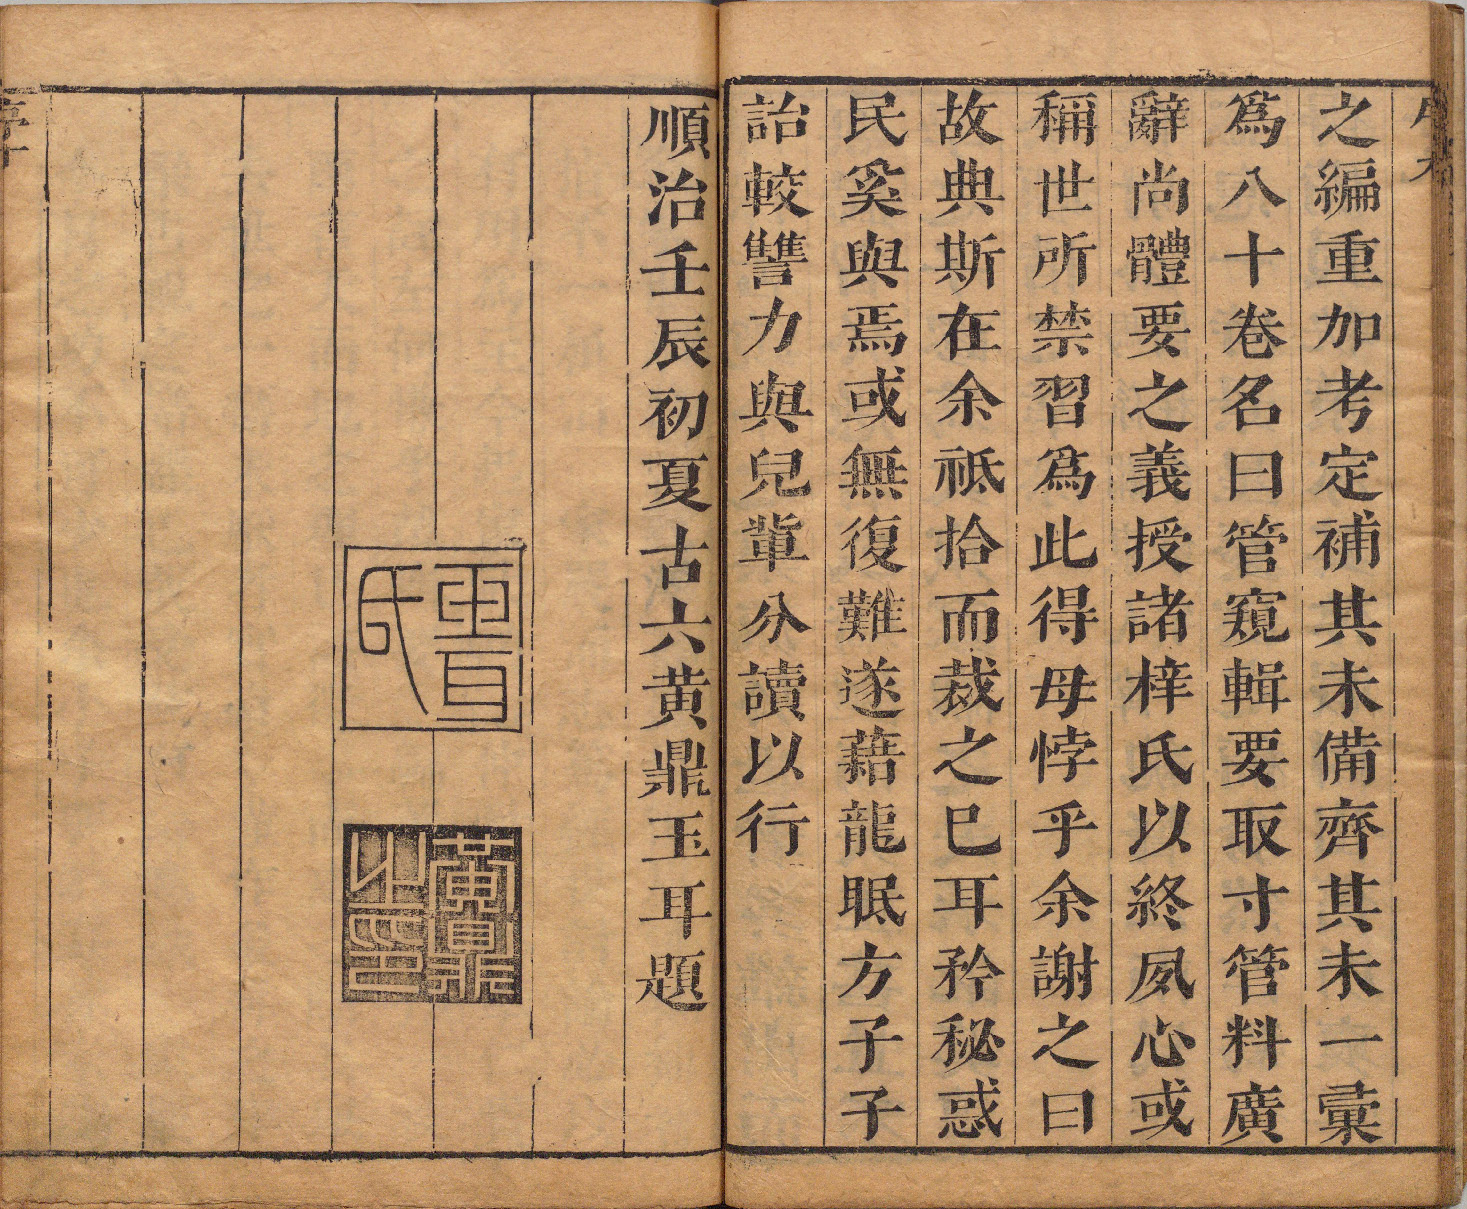 之編重加考定補其未備齊其未一彚
爲八十卷名曰管窺輯要取寸管料廣
辭尚體要之義授諸梓氏以終夙心或
稱世所禁習爲此得母悖乎余謝之曰
故典斯在余祗拾而裁之巳耳矜秘惑
民奚與焉或無復難遂藉龍眠方子子
詒較讐力與兒軰分讀以行
順治壬辰初夏古六黄鼎玉耳題
玉耳氏
黄鼎之印